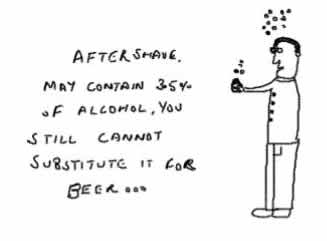 AFTERSHAVE.
MAY CONTAIN 35%
OF ALCOHOL, YOU
STILL CANNOT
SUBSTITUTE IT FOR
BEER...